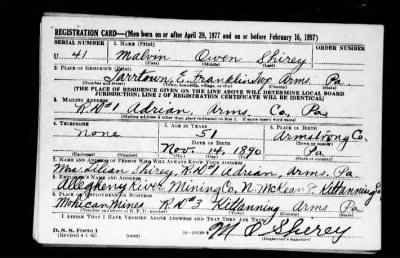 REGISTRATION CARD—(Men born on or after April 28, 1877 and on or before February 16, 1897)
SERIAL NUMBER 1. NAME (Print) ORDER NUMBER
U 41 Malvin Owen Shirey
(First) (Middle) (Last)
2. PLACE OF RESIDENCE (Print)
Tarrtown, E. Franklin Twp Arms. Pa
(Number and street) (Town, township, village, or city) (County) (State)
[THE PLACE OF RESIDENCE GIVEN ON THE LINE ABOVE WILL DETERMINE LOCAL BOARD
JURISDICTION; LINE 2 OF REGISTRATION CERTIFICATE WILL BE IDENTICAL]
3. MAILING ADDRESS
R.D#1 Adrian, Arms. Co. Pa
[Mailing address if other than place indicated on line 2. If same insert word same]
4. TELEPHONE 5. AGE IN YEARS 6. PLACE OF BIRTH
None 51 Armstrong Co.
DATE OF BIRTH (Town or county)
Nov. 14, 1890 Pa
(Exchange) (Number) (Mo.) (Day) (Yr.) (State or country)
7. NAME AND ADDRESS OF PERSON WHO WILL ALWAYS KNOW YOUR ADDRESS
Mrs. Lilian Shirey, R.D#1 Adrian, Arms. Pa.
8. EMPLOYER'S NAME AND ADDRESS
Allegheny River Mining Co. N. McKean St. Kittanning Pa
9. PLACE OF EMPLOYMENT OR BUSINESS
Mohican Mines R.D#3 Kittanning Arms. Pa
(Number and street or R. F. D. number) (Town) (County) (State)
I AFFIRM THAT I HAVE VERIFIED ABOVE ANSWERS AND THAT THEY ARE TRUE.
D. S. S. Form 1
(Revised 4-1-42) (over) M O Shirey
(Registrant's signature)